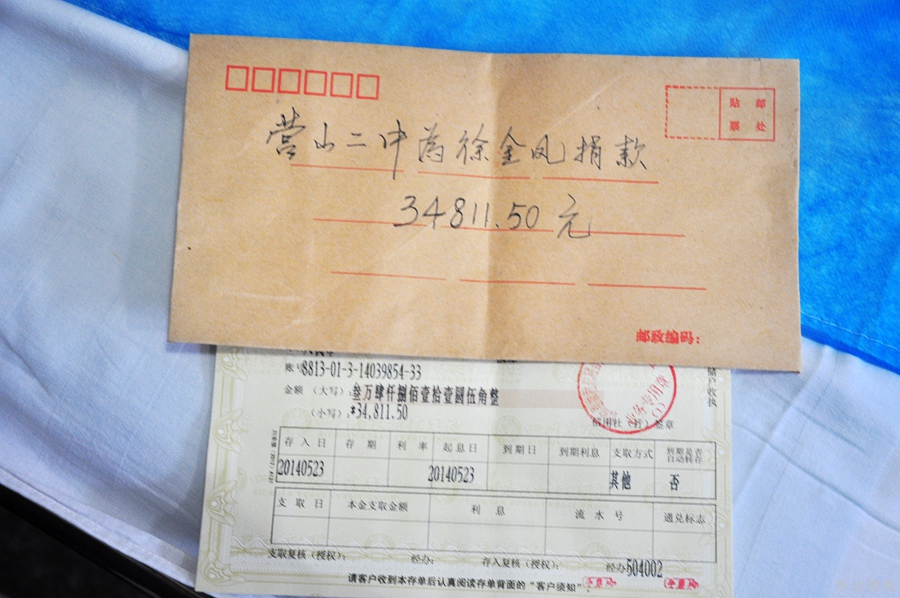 贴 邮
票 处
营山二中为徐金凤捐款
34811.50元
邮政编码：
账号8813-01-3-14039854-33
金额 （大写）：叁万肆仟捌佰壹拾壹圆伍角整
（小写）：*34,811.50
信用社（行）签章
储户收执
存入日 存期 利率 起息日 到期日 到期利息 支取方式 到期是否自动转存
20140523 20140523 其他 否
支取日 本金支取金额 利息 流水号 通兑标志
支取复核（授权）： 经办： 存入复核（授权）： 经办504002
请客户收到本存单后认真阅读存单背面的“客户须知”。